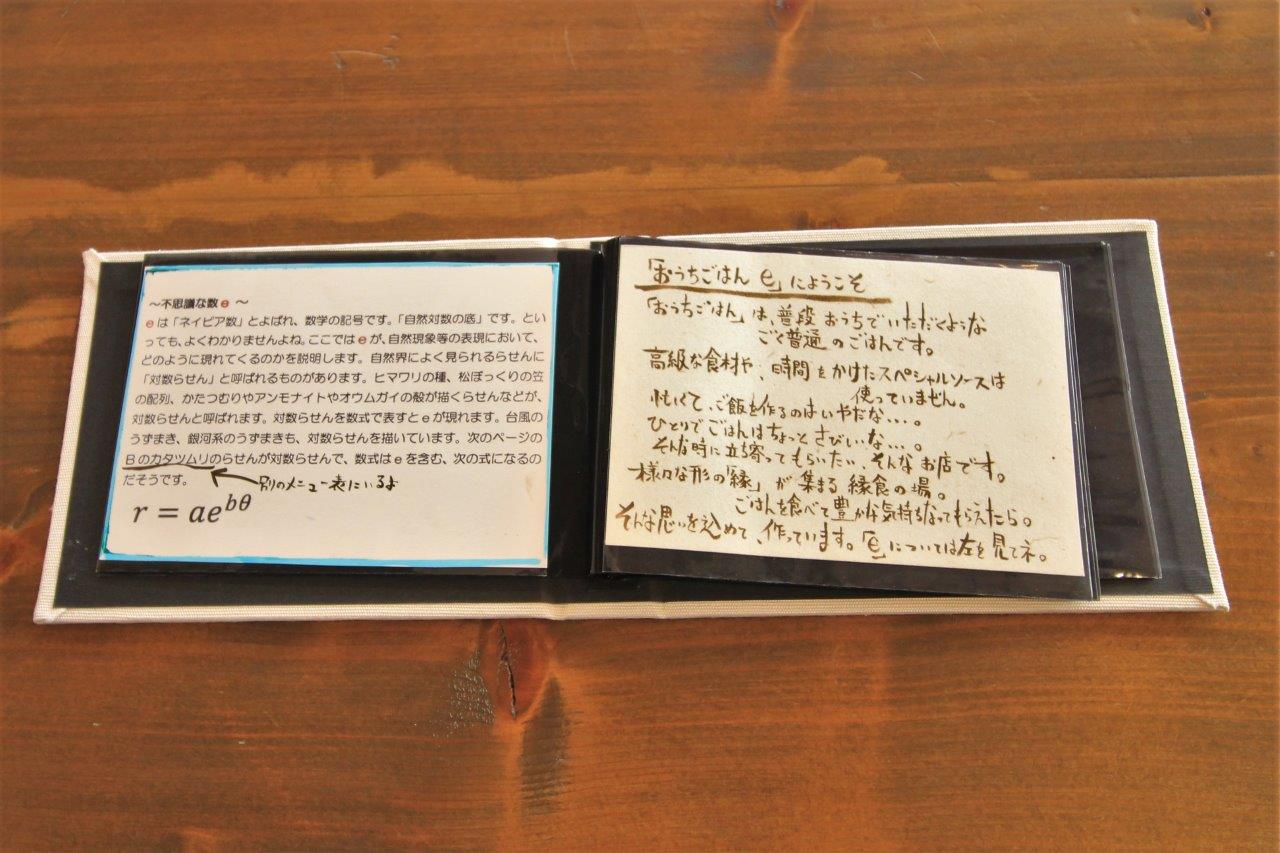 ～不思議な数e～
eは「ネイピア数」とよばれ、数学の記号です。「自然対数の底」です。とい
っても、よくわかりませんよね。ここではeが、自然現象等の表現において、
どのように現れてくるのかを説明します。自然界によく見られるらせんに
「対数らせん」と呼ばれるものがあります。ヒマワリの種、松ぼっくりの笠
の配列、かたつむりやアンモナイトやオウムガイの殻が描くらせんなどが、
対数らせんと呼ばれます。対数らせんを数式で表すとeが現れます。台風の
うずまき、銀河系のうずまきも、対数らせんを描いています。次のページの
Bのカタツムリのらせんが対数らせんで、数式はeを含む、次の式になるの
だそうです。
別のメニュー表にいるよ
r = ae^{bθ}
「おうちごはん e」にようこそ
「おうちごはん」は、普段おうちでいただくような
ごく普通のごはんです。
高級な食材や、時間をかけたスペシャルソースは
使っていません。
忙しくて、ご飯を作るのはいやだな…。
ひとりでごはんはちょっとさびしいな…。
そんな時に立寄ってもらいたい、そんなお店です。
様々な形の「縁」が集まる縁食の場。
ごはんを食べて豊かな気持ちなってもらえたら。
そんな思いを込めて、作っています。「e」については左を見てネ。